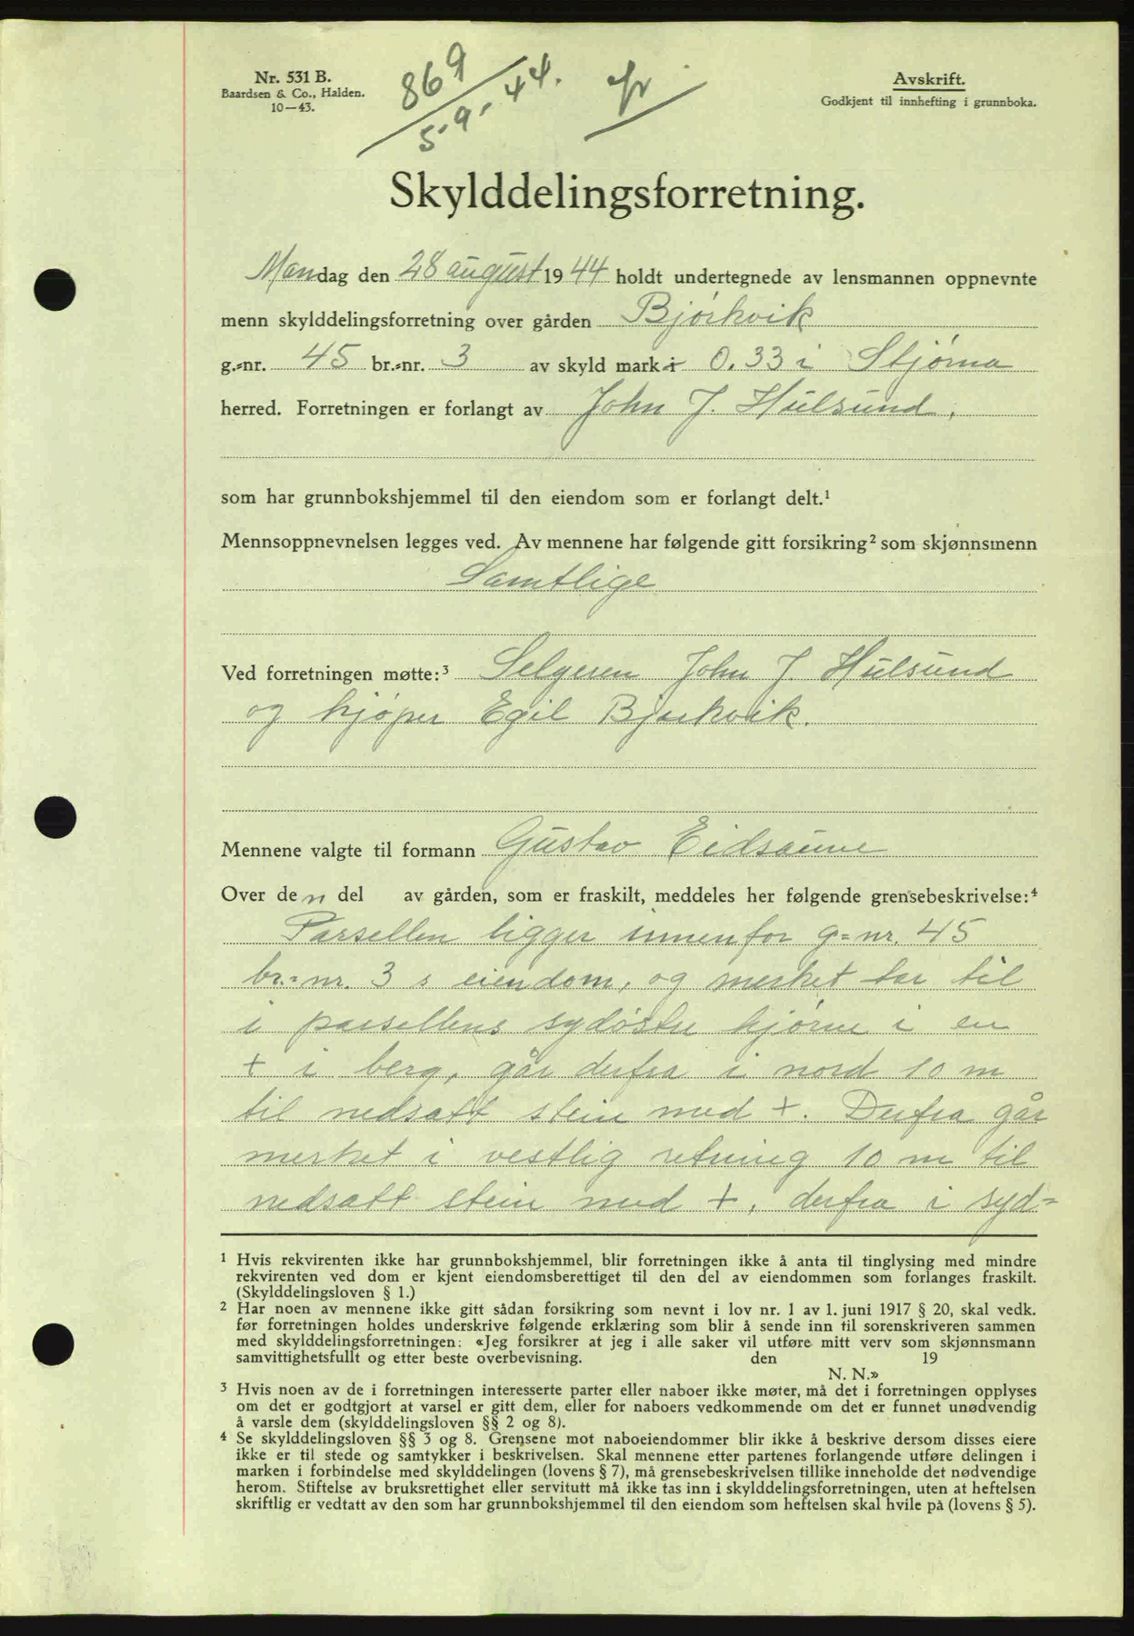 Nr. 531 B.
Baardsen & Co., Halden.
10—43.
869
5-9-44.
Avskrift.
Godkjent til innhefting i grunnboka.
Skylddelingsforretning.
Mandag den 28 august 1944 holdt undertegnede av lensmannen oppnevnte
menn skylddelingsforretning over gården Bjørkvik
g.-nr. 45 br.-nr. 3 av skyld mark 0.33 i Stjørna
herred. Forretningen er forlangt av John J. Hulsund,
som har grunnbokshjemmel til den eiendom som er forlangt delt.¹
Mennsoppnevnelsen legges ved. Av mennene har følgende gitt forsikring² som skjønnsmenn
Samtlige
Ved forretningen møtte:³ Selgeren John J. Hulsund
og kjøper Egil Bjørkvik.
Mennene valgte til formann Gustav Eidsaune
Over den del av gården, som er fraskilt, meddeles her følgende grensebeskrivelse:⁴
Parsellen ligger innenfor g-nr. 45
br.-nr. 3 s eiendom, og merket tar til
i parsellens sydøstre hjørne i en
+ i berg, går derfra i nord 10 m
til nedsatt stein med +. Derfra går
merket i vestlig retning 10 m til
nedsatt stein med +, derfra i syd-
¹ Hvis rekvirenten ikke har grunnbokshjemmel, blir forretningen ikke å anta til tinglysing med mindre
rekvirenten ved dom er kjent eiendomsberettiget til den del av eiendommen som forlanges fraskilt.
(Skylddelingsloven § 1.)
² Har noen av mennene ikke gitt sådan forsikring som nevnt i lov nr. 1 av 1. juni 1917 § 20, skal vedk.
før forretningen holdes underskrive følgende erklæring som blir å sende inn til sorenskriveren sammen
med skylddelingsforretningen: «Jeg forsikrer at jeg i alle saker vil utføre mitt verv som skjønnsmann
samvittighetsfullt og etter beste overbevisning. den 19
N. N.»
³ Hvis noen av de i forretningen interesserte parter eller naboer ikke møter, må det i forretningen opplyses
om det er godtgjort at varsel er gitt dem, eller for naboers vedkommende om det er funnet unødvendig
å varsle dem (skylddelingsloven §§ 2 og 8).
⁴ Se skylddelingsloven §§ 3 og 8. Grensene mot naboeiendommer blir ikke å beskrive dersom disses eiere
ikke er til stede og samtykker i beskrivelsen. Skal mennene etter partenes forlangende utføre delingen i
marken i forbindelse med skylddelingen (lovens § 7), må grensebeskrivelsen tillike inneholde det nødvendige
herom. Stiftelse av bruksrettighet eller servitutt må ikke tas inn i skylddelingsforretningen, uten at heftelsen
skriftlig er vedtatt av den som har grunnbokshjemmel til den eiendom som heftelsen skal hvile på (lovens § 5).